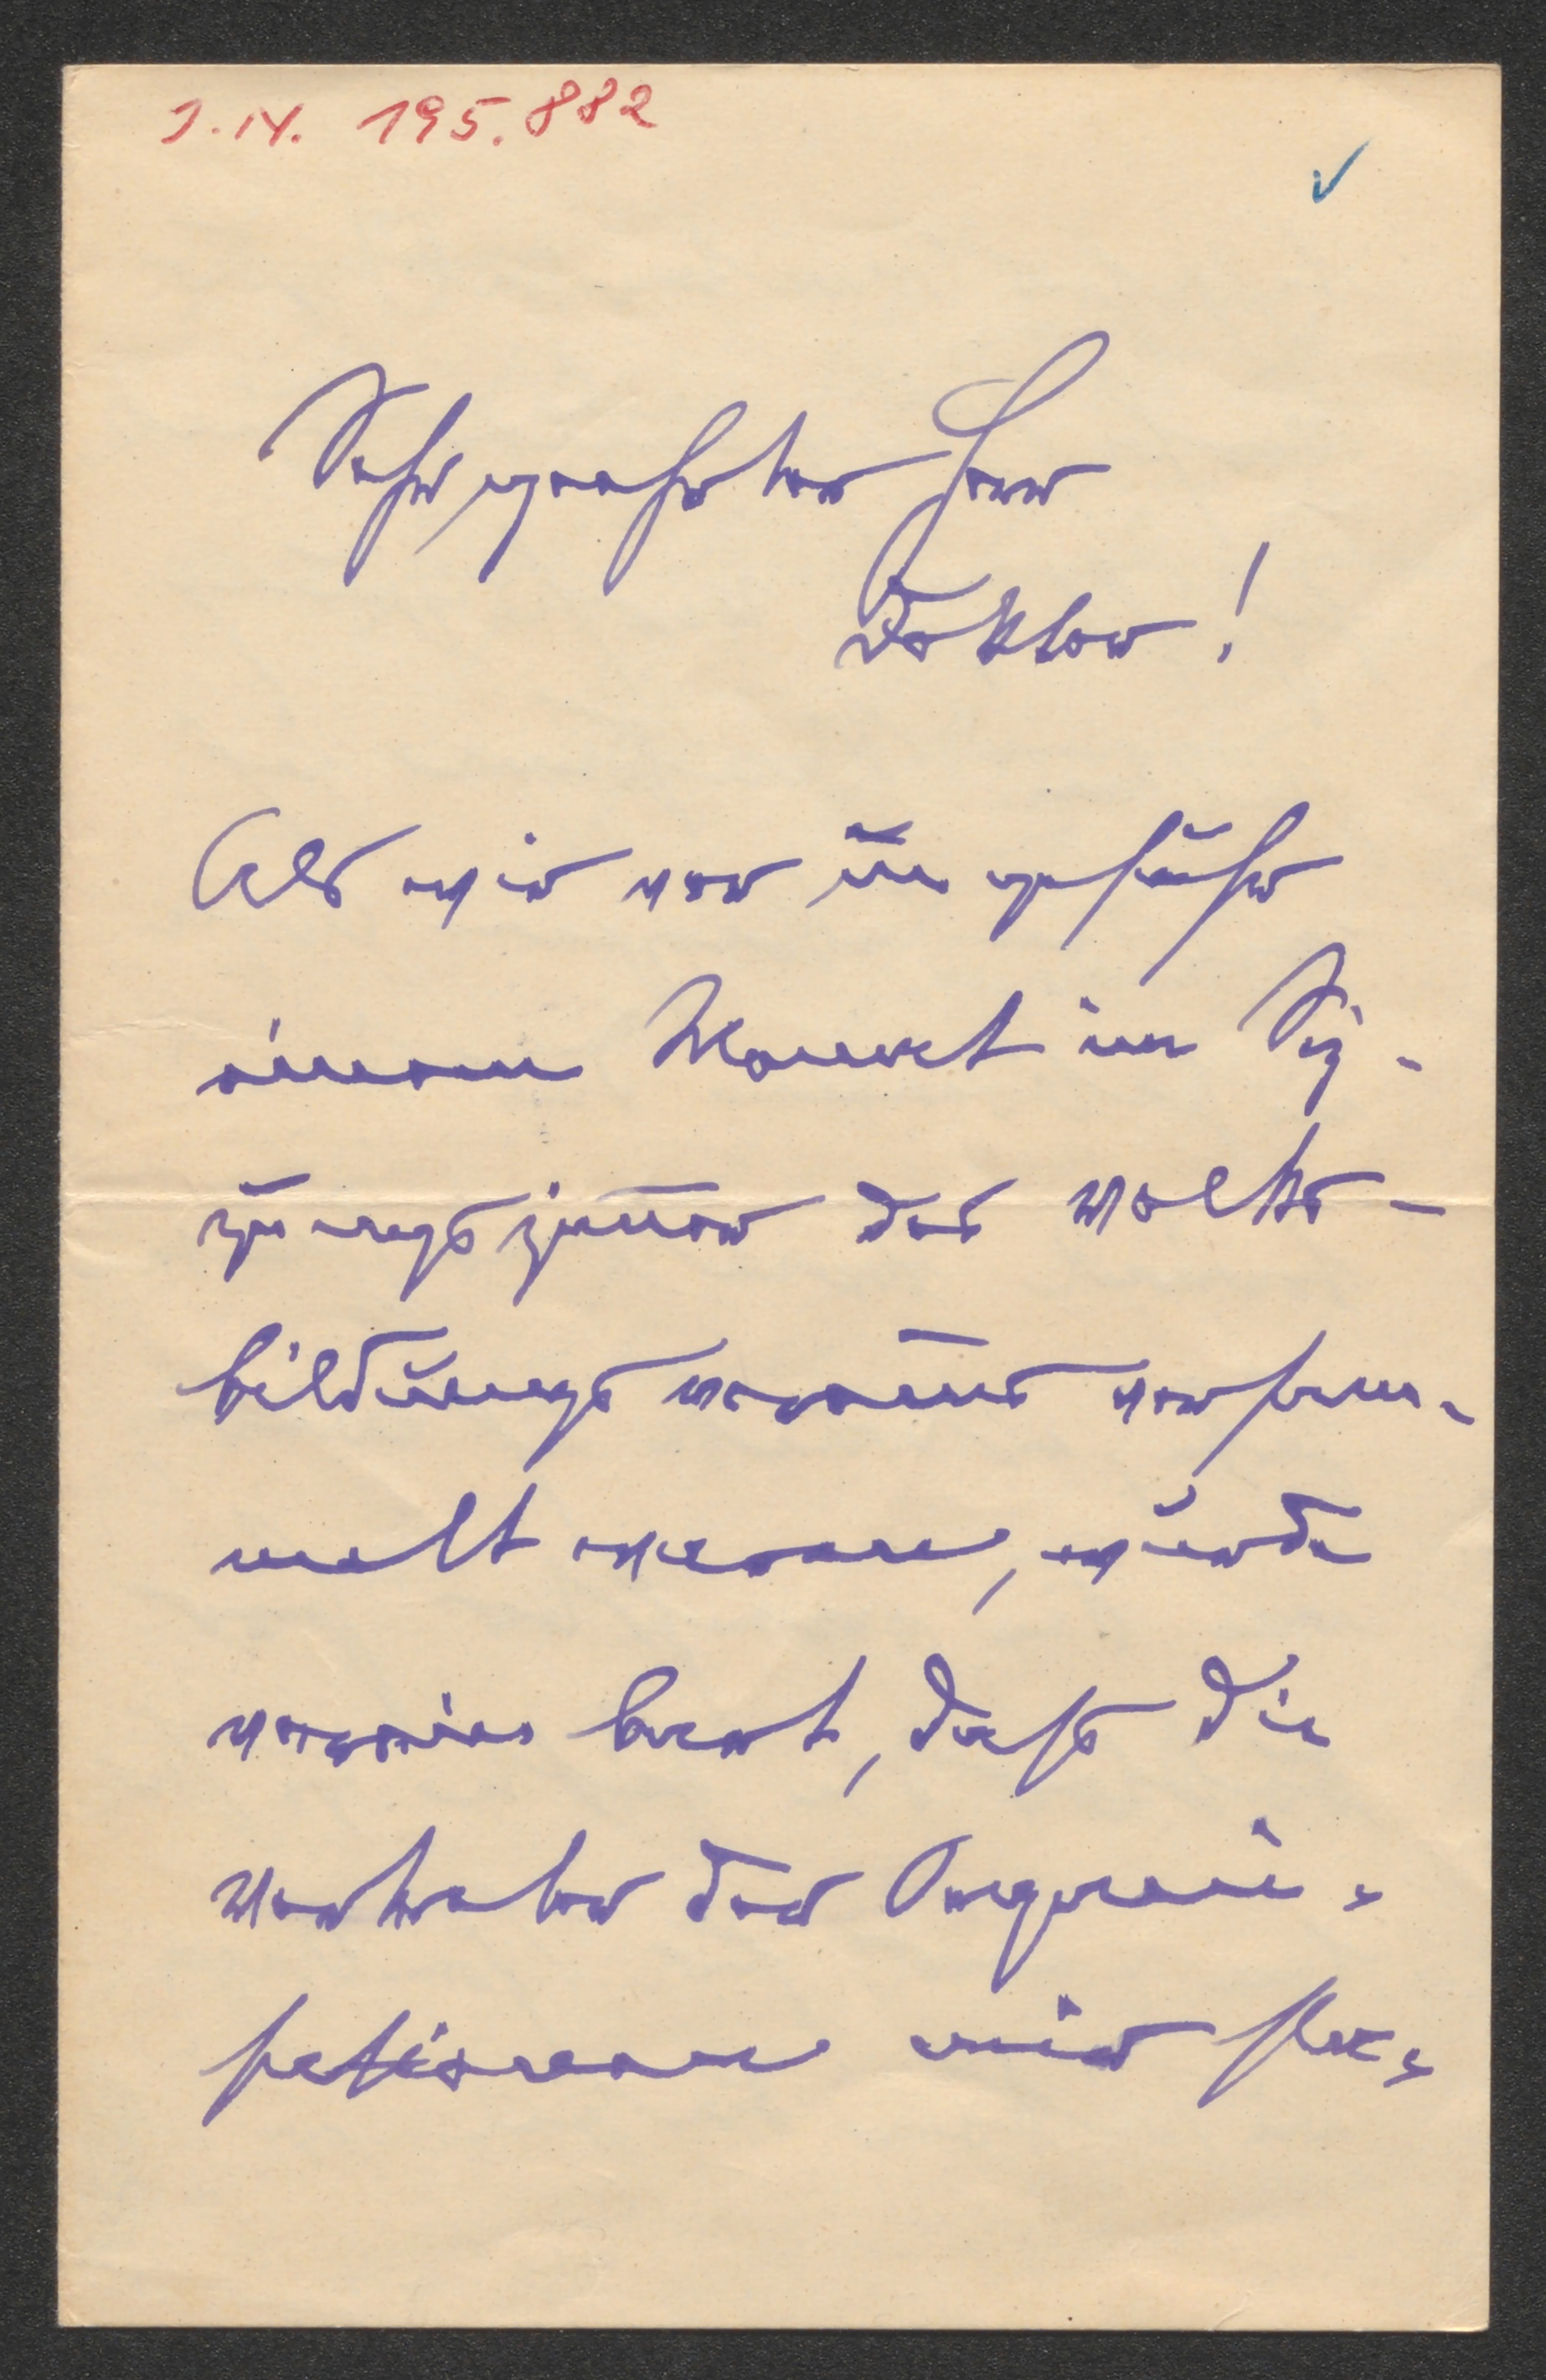 J.N. 195.882
Sehr geehrter Herr
Doktor!
Als wir vor ungefähr
einem Monat im Sit-
zungszimmer des Volks-
bildungsvereins versam-
melt waren, wurde
vereinbart, daß die
Vertreter der Organi-
sationen mir